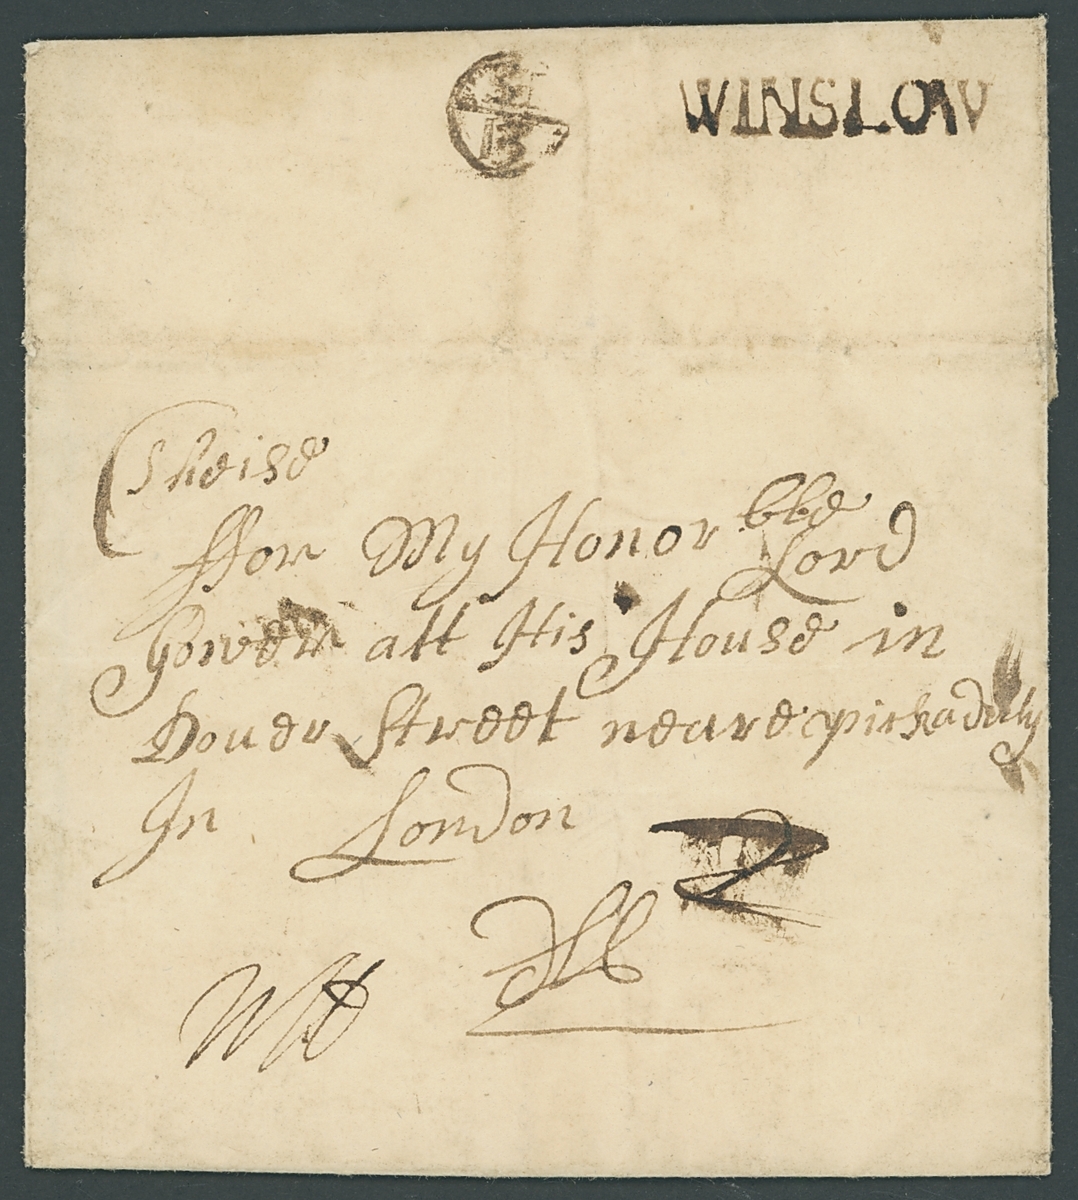 WINSLOW
13
Theise
ffor My Honor bble Lord
Gower att His House in
Dover Street neare pickadily
In London
2